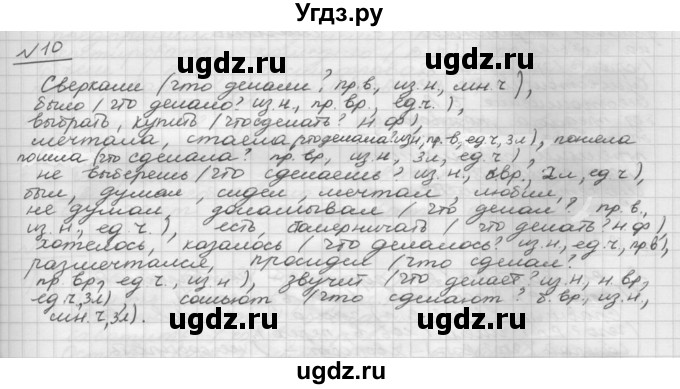 Угдз.ру
№10
Сверкали (что делали? пр.в., из.н., мн.ч),
было (что делало? из.н., пр.вр., ед.ч.),
выбрать, купить (что сделать? н.ф),
мечтала, стаела (что делала? из.н, пр.в, ед.ч, 3л), пошела
пошла (что сделала? пр.вр, из.н, 3л, ед.ч),
не выберешь (что сделаешь? из.н., б.вр, 2л, ед.ч),
был, думал, сидел, мечтал, любил,
не думал, доламывал (что делал? пр.в.,
из.н., ед.ч.), есть, балерничать (что делать? н.ф)
хотелось, казалось (что делалось? из.н, ед.ч, пр.в),
размечтался, просидел (что сделал?
пр.вр, ед.ч., из.н), звучит (что делает? из.н, н.вр,
ед.ч, 3л), сошьют (что сделают? б.вр, из.н,
мн.ч, 3л).
ugdz.ru ugdz.ru
ugdz.ru ugdz.ru
ugdz.ru ugdz.ru
ugdz.ru ugdz.ru